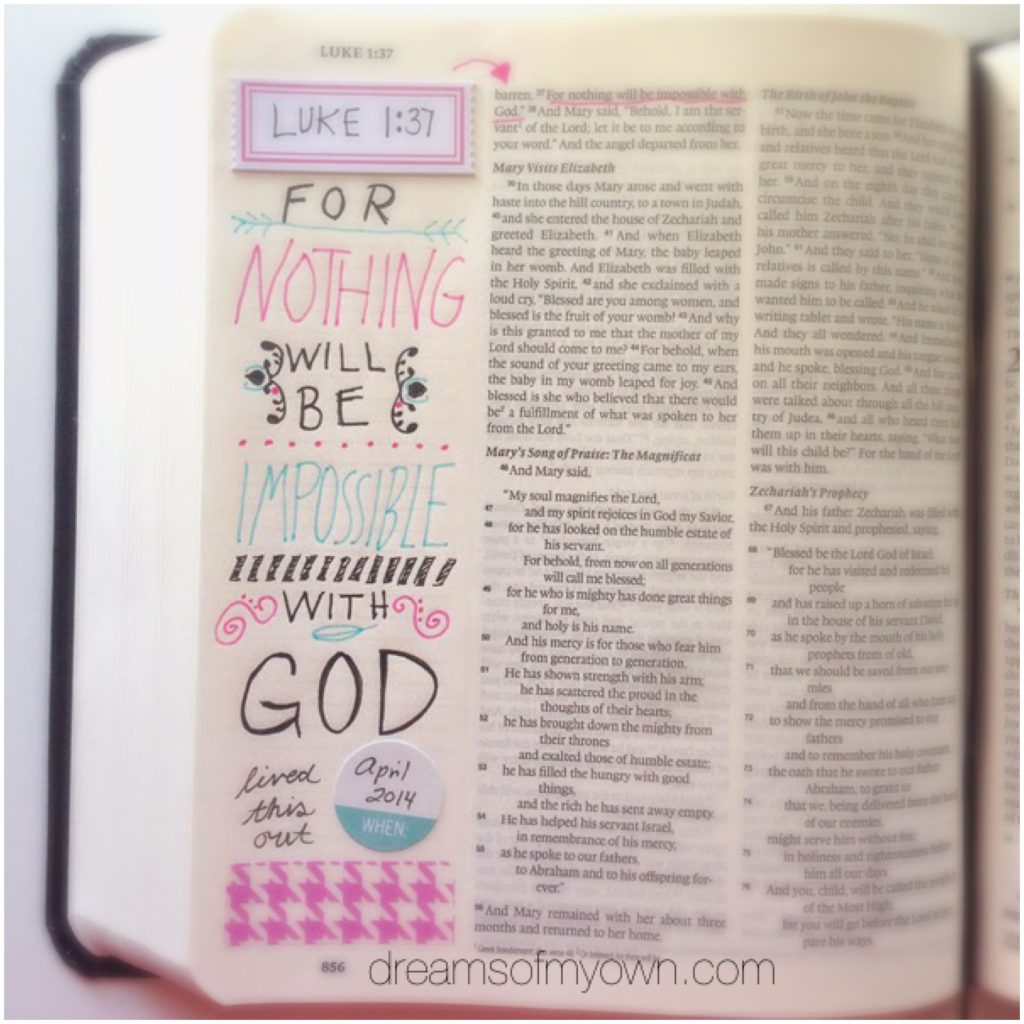 LUKE 1:37
LUKE 1:37
FOR
NOTHING
WILL
BE
IMPOSSIBLE
WITH
GOD
lived
this
out
April
2014
WHEN
856
barren. 37 For nothing will be impossible with
God." 38 And Mary said, "Behold, I am the ser-
vant of the Lord; let it be to me according to
your word." And the angel departed from her.
Mary Visits Elizabeth
39 In those days Mary arose and went with
haste into the hill country, to a town in Judah,
40 and she entered the house of Zechariah and
greeted Elizabeth. 41 And when Elizabeth
heard the greeting of Mary, the baby leaped
in her womb. And Elizabeth was filled with
the Holy Spirit, 42 and she exclaimed with a
loud cry, "Blessed are you among women, and
blessed is the fruit of your womb! 43 And why
is this granted to me that the mother of my
Lord should come to me? 44 For behold, when
the sound of your greeting came to my ears,
the baby in my womb leaped for joy. 45 And
blessed is she who believed that there would
be a fulfillment of what was spoken to her
from the Lord."
Mary's Song of Praise: The Magnificat
46 And Mary said,
"My soul magnifies the Lord,
47 and my spirit rejoices in God my Savior,
48 for he has looked on the humble estate of
his servant.
For behold, from now on all generations
will call me blessed;
49 for he who is mighty has done great things
for me,
and holy is his name.
50 And his mercy is for those who fear him
from generation to generation.
51 He has shown strength with his arm;
he has scattered the proud in the
thoughts of their hearts;
52 he has brought down the mighty from
their thrones
and exalted those of humble estate;
53 he has filled the hungry with good
things,
and the rich he has sent away empty.
54 He has helped his servant Israel,
in remembrance of his mercy,
55 as he spoke to our fathers,
to Abraham and to his offspring for-
ever."
56 And Mary remained with her about three
months and returned to her home.
The Birth of John the Baptist
57 Now the time came for
birth, and she bore a son. 58 And her
and relatives heard that the Lord had
great mercy to her, and they
her. 59 And on the eighth day they
circumcise the child. And they
called him Zechariah after his father,
his mother answered, "No; he shall be
John." 61 And they said to her, "None of
relatives is called by this name."
made signs to his father, inquiring what
wanted him to be called. 63 And he asked
writing tablet and wrote, "His name is
And they all wondered. 64 And
his mouth was opened and his tongue
and he spoke, blessing God. 65 And fear
on all their neighbors. And all these
were talked about through all the hill
try of Judea, 66 and all who heard them
them up in their hearts, saying, "What
will this child be?" For the hand of the
was with him.
Zechariah's Prophecy
67 And his father Zechariah was filled with
the Holy Spirit and prophesied, saying,
68 "Blessed be the Lord God of Israel,
for he has visited and redeemed his
people
69 and has raised up a horn of salvation
in the house of his servant David,
70 as he spoke by the mouth of his holy
prophets from of old,
71 that we should be saved from our ene-
mies
and from the hand of all who hate
72 to show the mercy promised to our
fathers
and to remember his holy covenant,
73 the oath that he swore to our father
Abraham, to grant us
74 that we, being delivered from the
of our enemies,
might serve him without fear,
75 in holiness and righteousness before
him all our days.
76 And you, child, will be called the prophet
of the Most High;
for you will go before the Lord to
pare his ways,
dreamsofmyown.com